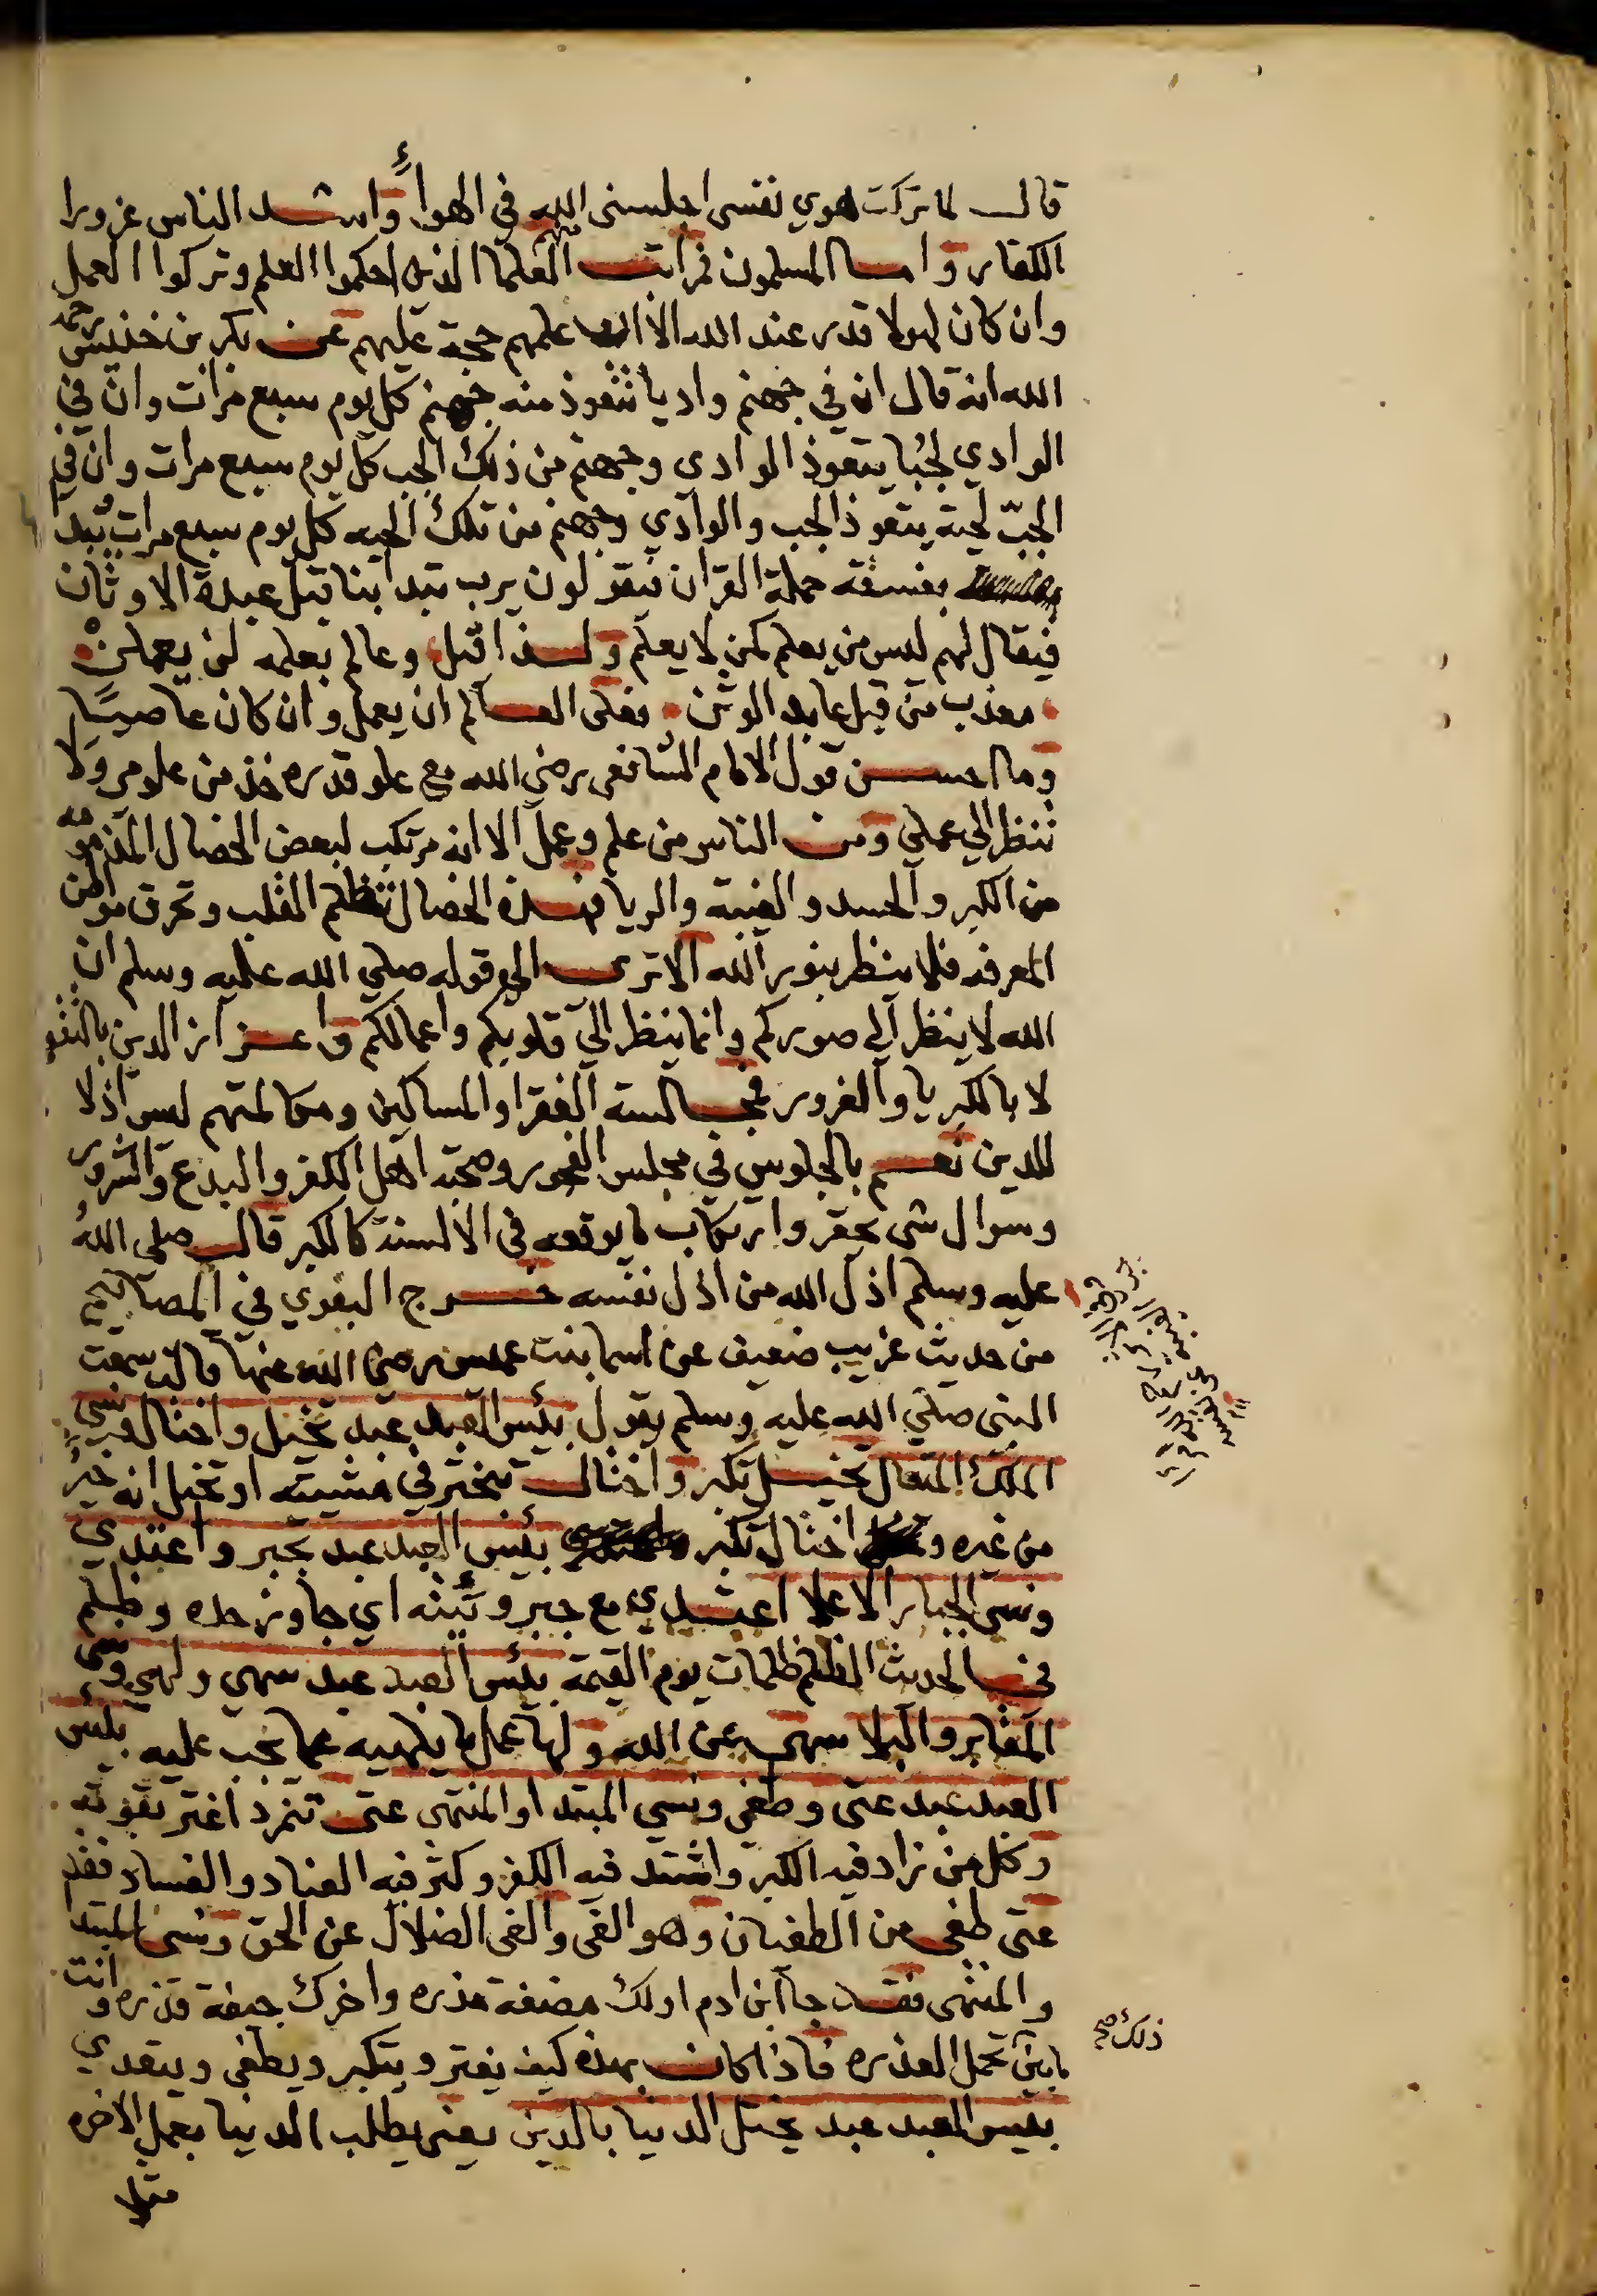 قال لما تركت هوي نفسي اجلسني الله في الهواء واشد الناس غرورا
الكفار واما المسلمون فمراتب منهم العلما الذين احكموا العلم وتركوا العمل
وان كان لهولا قدر عند الله الا ان علمهم حجة عليهم عن بكر بن خنيس رحمه
الله انه قال ان في جهنم واديا تتعوذ منه جهنم كل يوم سبع مرات وان في
الوادي لجبا يتعوذ الوادي وجهنم من ذلك الجب كل يوم سبع مرات وان في
الجبّ لحية يتعوذ الجب والوادي وجهنم من تلك الحيه كل يوم سبع مرات يبدا
بفسقة حملة القران فيقولون يرب بتدا بنا قبل عبدة الاوثان
فيقال لهم ليس من يعلم كمن لا يعلم ولذا قيل وعالم بعلمه لن يعملن
معذب من قبل عابد الوثن فعلى العالم ان يعمل وان كان عاصيًا
وما احسن قول الامام الشافعي رضي الله مع علو قدره خذ من علومي ولا
تنظر الي عملي ومن الناس من علم وعمل الا انه مرتكب لبعض الخصال المذمومه
من الكبر والحسد والغيبة والريا فهذه الخصال تظلم القلب وتحرق مواطن
المعرفه فلا ينظر بنور الله الا ترى الي قوله صلي الله عليه وسلم ان
الله لا ينظر الي صوركم وانما ينظر الي قلوبكم واعمالكم واعزاز الدين بالتقو
لا بالكبريا والغرور فمجالسة الفقرا والمساكين ومكالمتهم ليس اذلا
للدين نعم بالجلوس في مجلس الفجور وصحبة اهل الكفر والبدع والشرور
وسوال شي محقر وارتكاب ما يوقعه في الالسنة كالكبر قال صلى الله
عليه وسلم اذل الله من اذل نفسه خرج البغوي في المصابيح
من حديث غريب ضعيف عن اسما بنت عميس رضي الله عنها قالت سمعت
النبي صلي الله عليه وسلم يقول بئس العبد عبد تخيل واختال ونسي
الملك المتعال تخيل تكبر واختال تبختر في مشيته او تخيل انه خيرٌ
من غيره واختال تكبر بئس العبد عبد تجبر واعتدي
ونسي الجبار الاعلا اعتدي مع جبروتيته اي جاوز حده وظلم
فى الحديث الظلم ظلمات يوم القيمة بئس العبد عبد سهي ولهي ونسى
المقابر والبلا سهي عن الله ولها عمل ما يلهيه عما يجب عليه بئس
العبد عبد عتى وطغى ونسي المبتدا والمنتهى عتى تمرد اغتر بقوته
وكل من زاد فيه الكبر واشتد فيه الكفر وكثر فيه العناد والفساد فقد
عتى طغى من الطغيان وهو الغى والغى الضلال عن الحق ونسى المبتدا
والمنتهى فقد جا ابن ادم اولك مضغة مذره واخرك جيفة قذره وانت
ما بين تحمل العذره فاذا كان بهذه كيف يغتر ويتكبر ويطغى ويتعدي
ذلك صح
بئيس العبد عبد يختل الدنيا بالدين يعني يطلب الدنيا بعمل الاخره